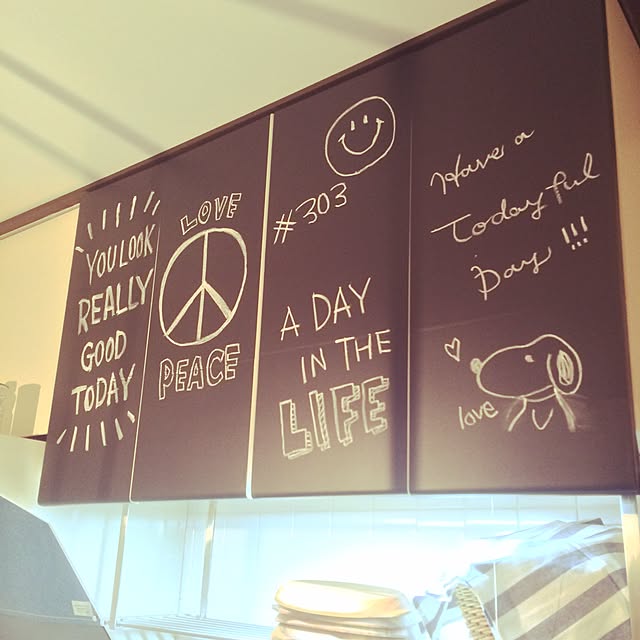 YOU LOOK
REALLY
GOOD
TODAY
LOVE
PEACE
#303
A DAY
IN THE
LIFE
Have a
Todayful
Day !!!
love